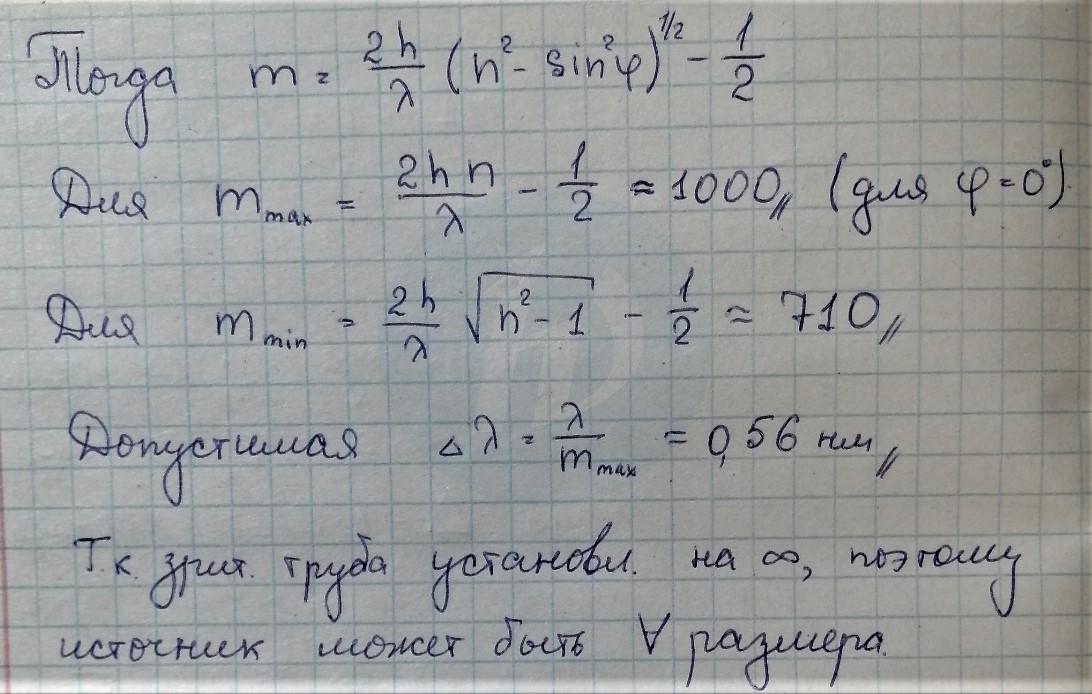 Тогда m = 2h/λ (n² - sin²φ)^1/2 - 1/2
Для m max = 2hn/λ - 1/2 ≈ 1000,, (для φ = 0°)
Для m min = 2h/λ √(n² - 1) - 1/2 ≈ 710,,
Допустимая Δλ = λ/m max = 0,56 нм,,
Т.к. зрит. труба установл. на ∞, поэтому
источник может быть ∀ размера.